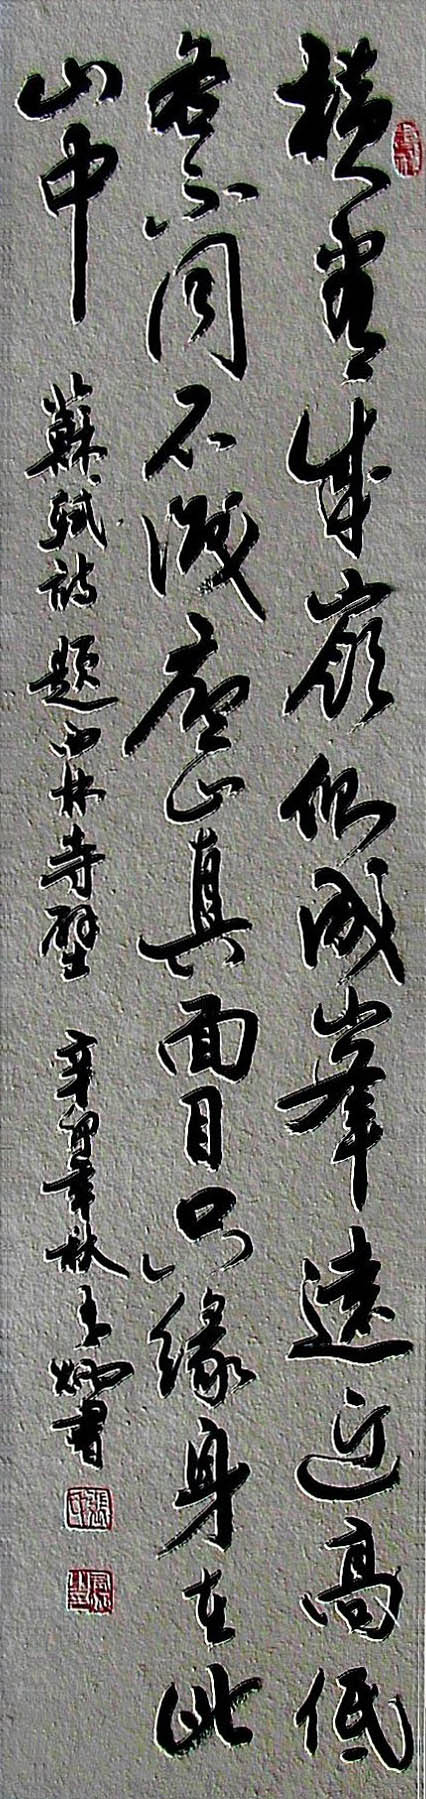 橫看成嶺側成峯遠近高低
各不同不識廬山真面目只緣身在此
山中 蘇軾詩題西林寺壁 辛卯年秋 書